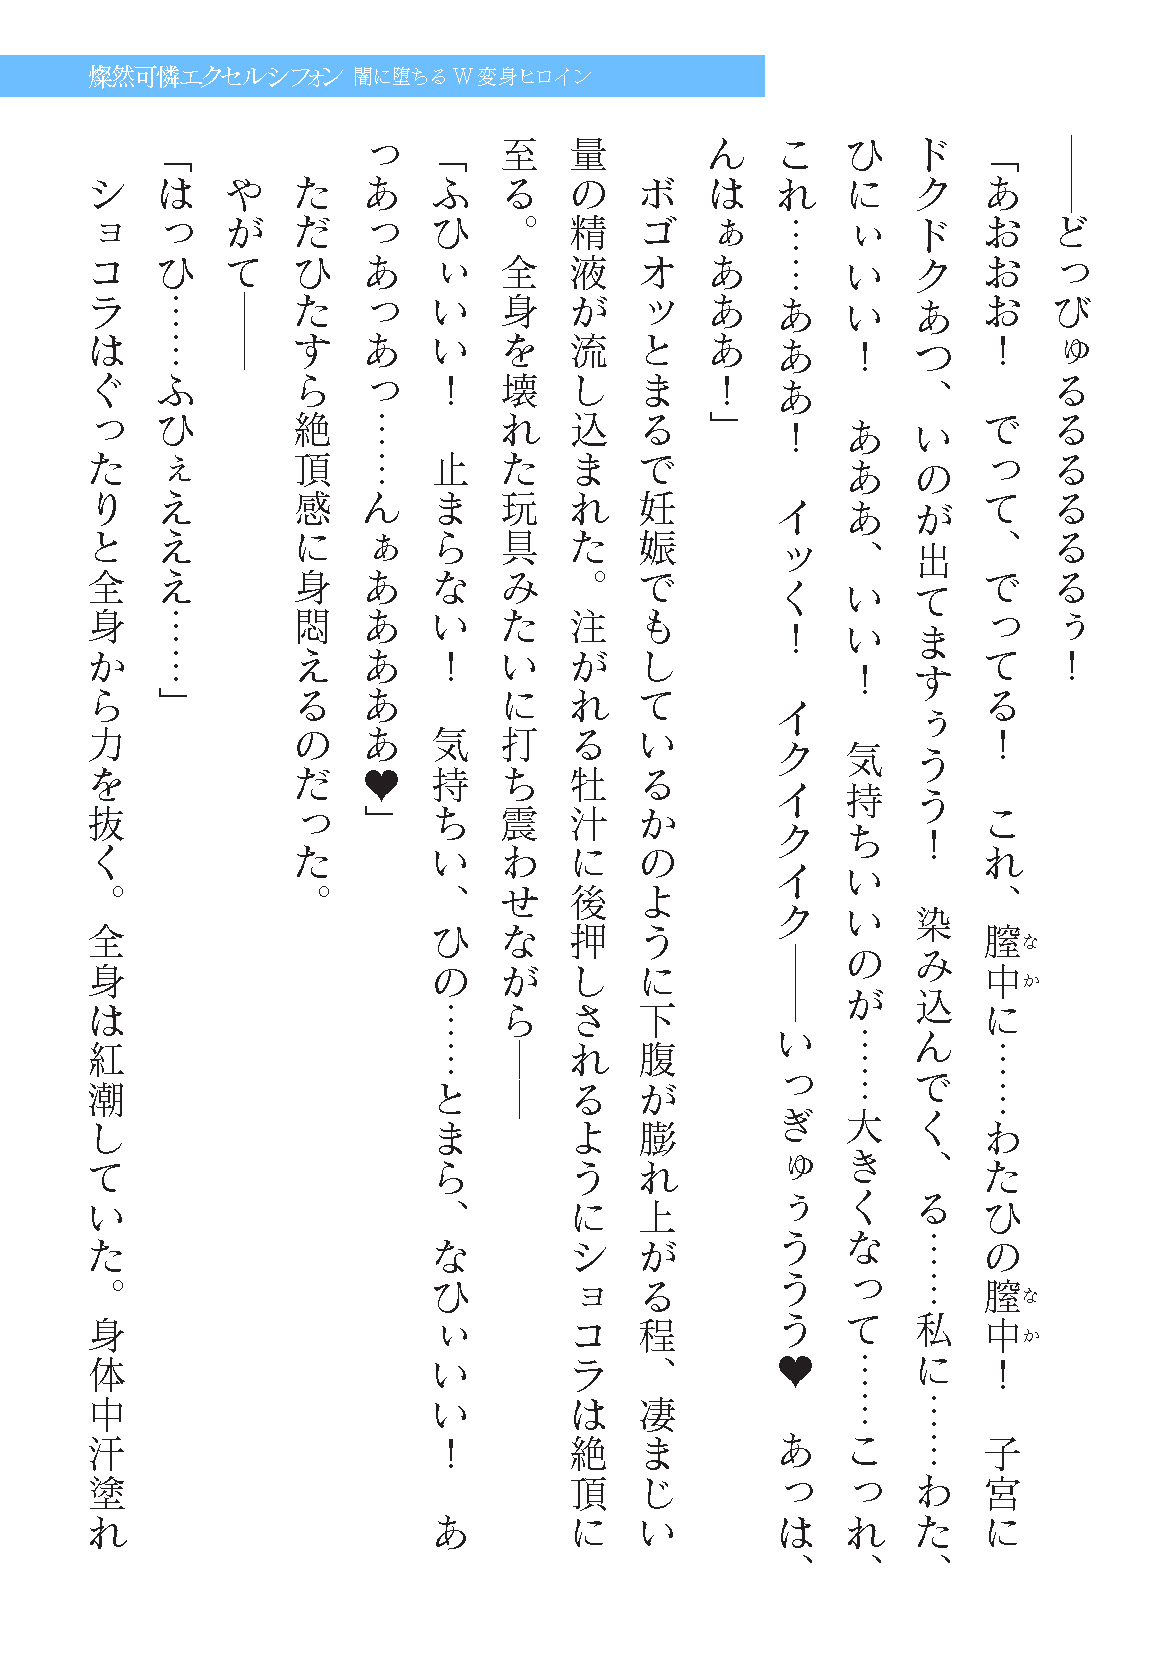 燦然可憐エクセルシフォン 闇に堕ちるW変身ヒロイン
――どっびゅるるるるるるぅ！
「あおおお！　でって、でってる！　これ、膣中に……わたひの膣中！　子宮に
なか なか
ドクドクあつ、いのが出てますぅうう！　染み込んでく、る……私に……わた、
ひにぃいい！　あああ、いい！　気持ちいいのが……大きくなって……こっれ、
これ……あああ！　イッく！　イクイクイク――いっぎゅぅううう♥　あっは、
んはぁあああ！」
　ボゴオッとまるで妊娠でもしているかのように下腹が膨れ上がる程、凄まじい
量の精液が流し込まれた。注がれる牡汁に後押しされるようにショコラは絶頂に
至る。全身を壊れた玩具みたいに打ち震わせながら――
「ふひぃいい！　止まらない！　気持ちい、ひの……とまら、なひぃいい！　あ
っあっあっあっ……んぁあああああ♥」
　ただひたすら絶頂感に身悶えるのだった。
　やがて――
「はっひ……ふひぇえええ……」
　ショコラはぐったりと全身から力を抜く。全身は紅潮していた。身体中汗塗れ